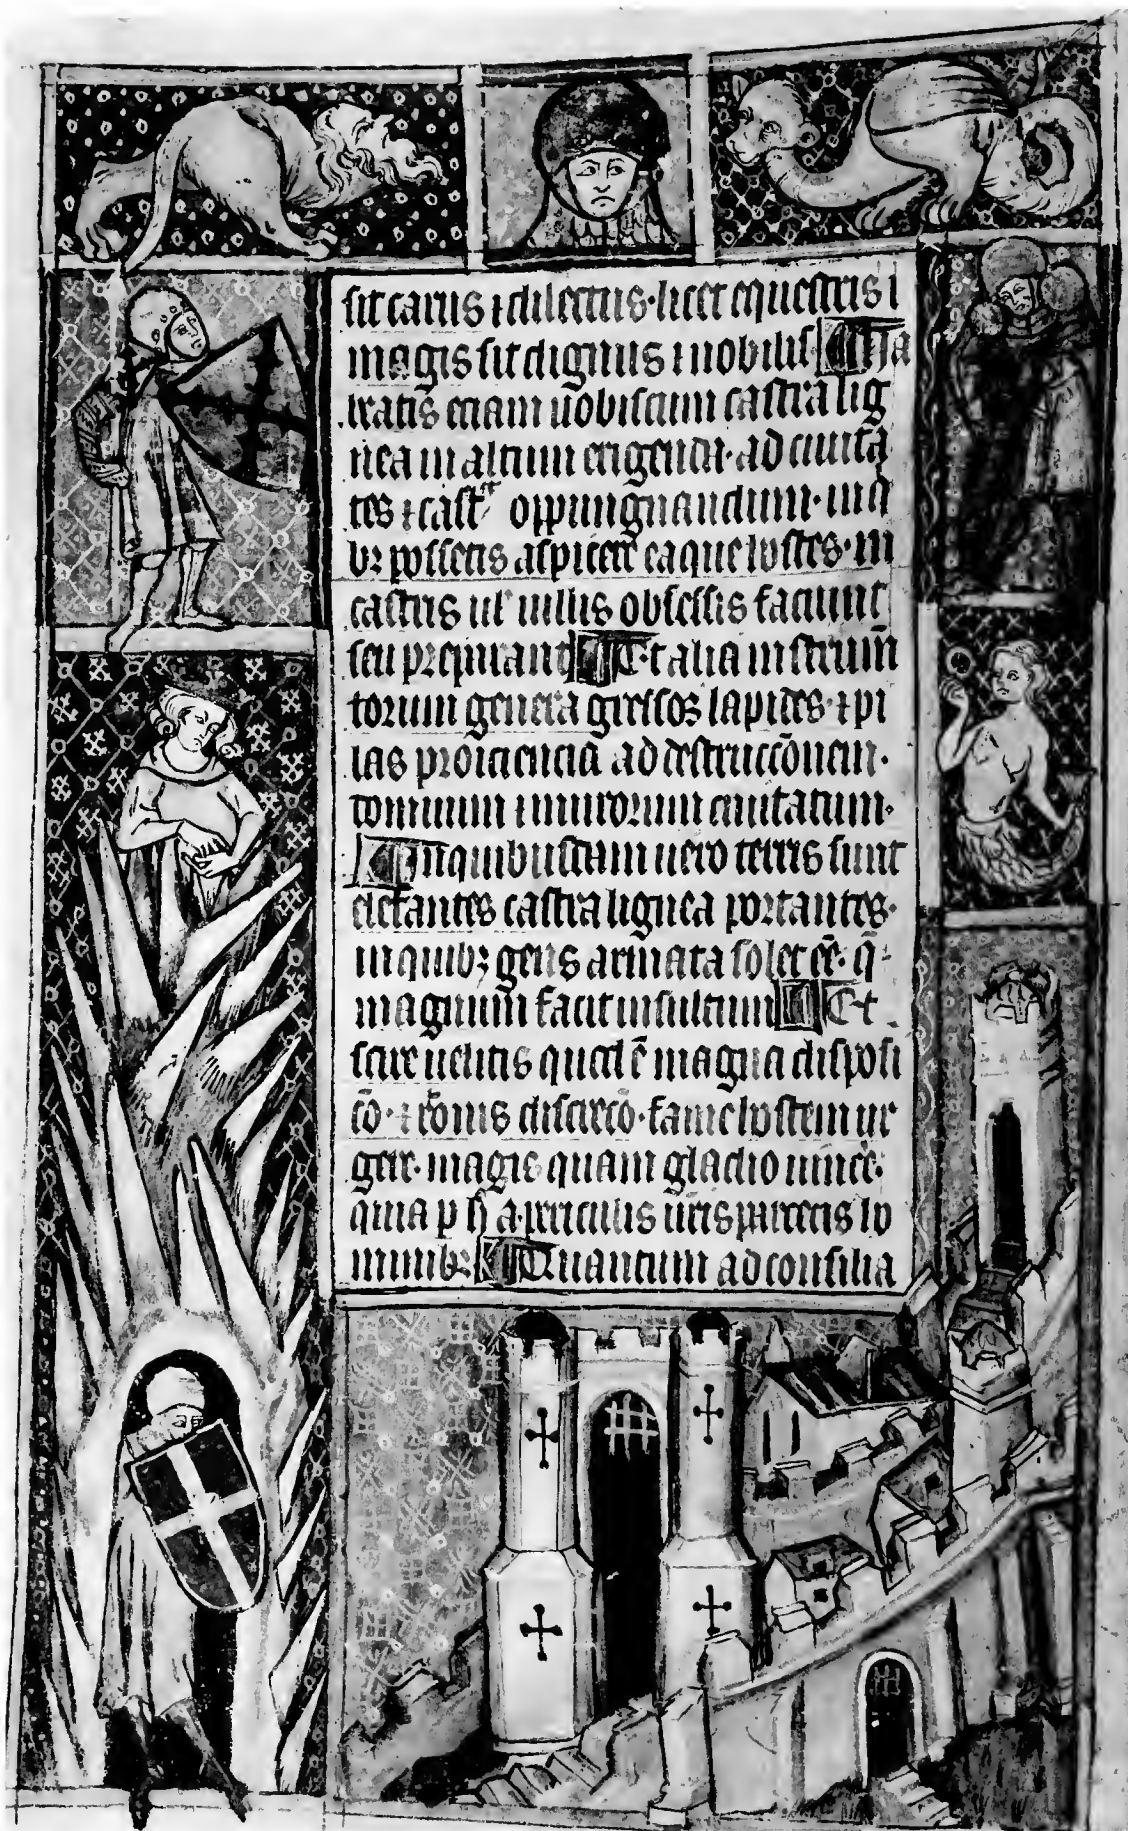 sit carus ⁊ dilectus· licet equestris i
magis sit dignus ⁊ nobilis Pa
ratis etiam uobiscum castra lig
nea in altum erigenda· ad ciuita
tes ⁊ cast oppungnandum· in q
bꝫ possetis aspicere ea que hostes· in
castris ul uillis obsessis faciunt
seu preparant Et alia instrum̄
torum genera grossos lapides· ⁊ pi
las proiciencia ad destrucc̄onem·
domuum ⁊ murorum ciuitatum·
In quibusdam uero terris sunt
elefantes castra lignea portantes·
in quibꝫ gens armata solet eē· q̄
magnum facit insultum Et
scire uelitis quod ē magna disposi
c̄o· ⁊ rōnis discrec̄o· fame hostem ur
gere· magis quam gladio uincē·
quia p h̄ a periculis ūris parcetis ho
minibꝫ Quantum ad consilia